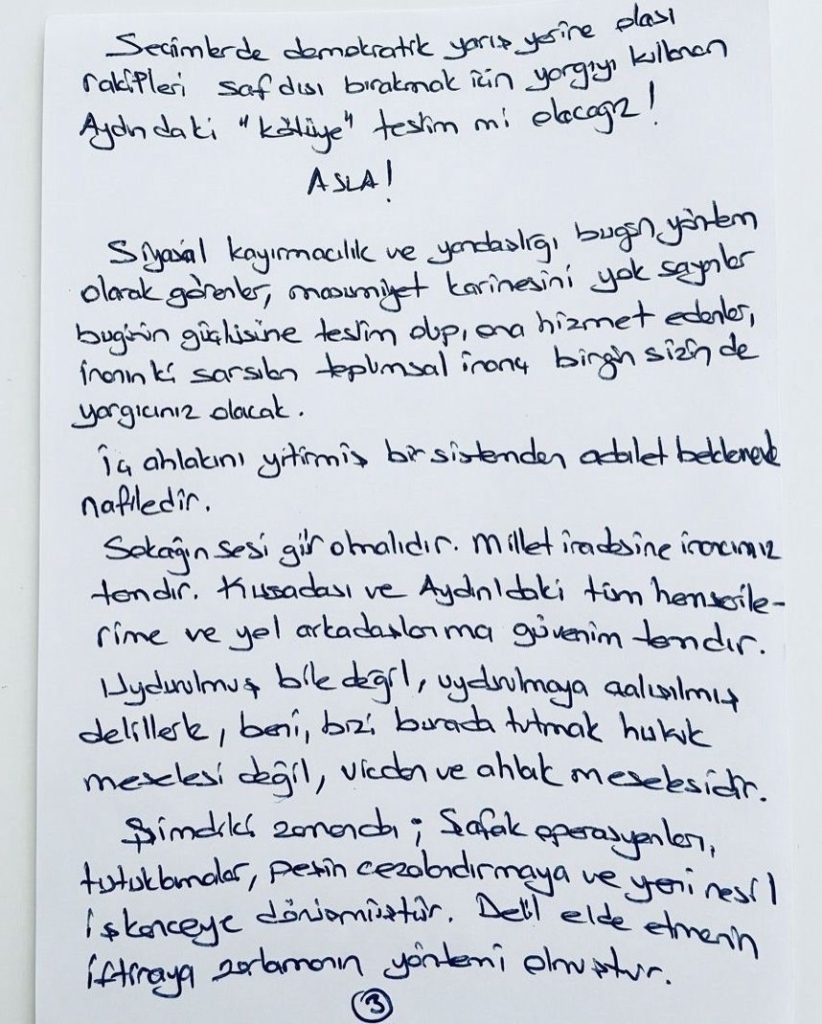 Seçimlerde demokratik yarış yerine olası
rakipleri saf dışı bırakmak için yargıyı kullanan
Aydındaki "kötüye" teslim mi olacağız!
ASLA!
Siyasal kayırmacılık ve yandaşlığı bugün yöntem
olarak görenler, masumiyet karinesini yok sayanlar
bugünün güçlüsüne teslim olup, ona hizmet edenler,
inanın ki sarsılan toplumsal inanç birgün sizin de
yargıcınız olacak.
İç ahlakını yitirmiş bir sistemden adalet beklemek
nafiledir.
Sokağın sesi gür olmalıdır. Millet iradesine inancımız
tamdır. Kuşadası ve Aydın'daki tüm hemşerile-
rime ve yol arkadaşlarıma güvenim tamdır.
Uydurulmuş bile değil, uydurulmaya çalışılmış
delillerle, beni, bizi burada tutmak hukuk
meselesi değil, vicdan ve ahlak meselesidir.
Şimdiki zamanda; Şafak operasyonları,
tutuklamalar, peşin cezalandırmaya ve yeni nesil
işkenceye dönüşmüştür. Delil elde etmenin
iftiraya zorlamanın yöntemi olmuştur.
3